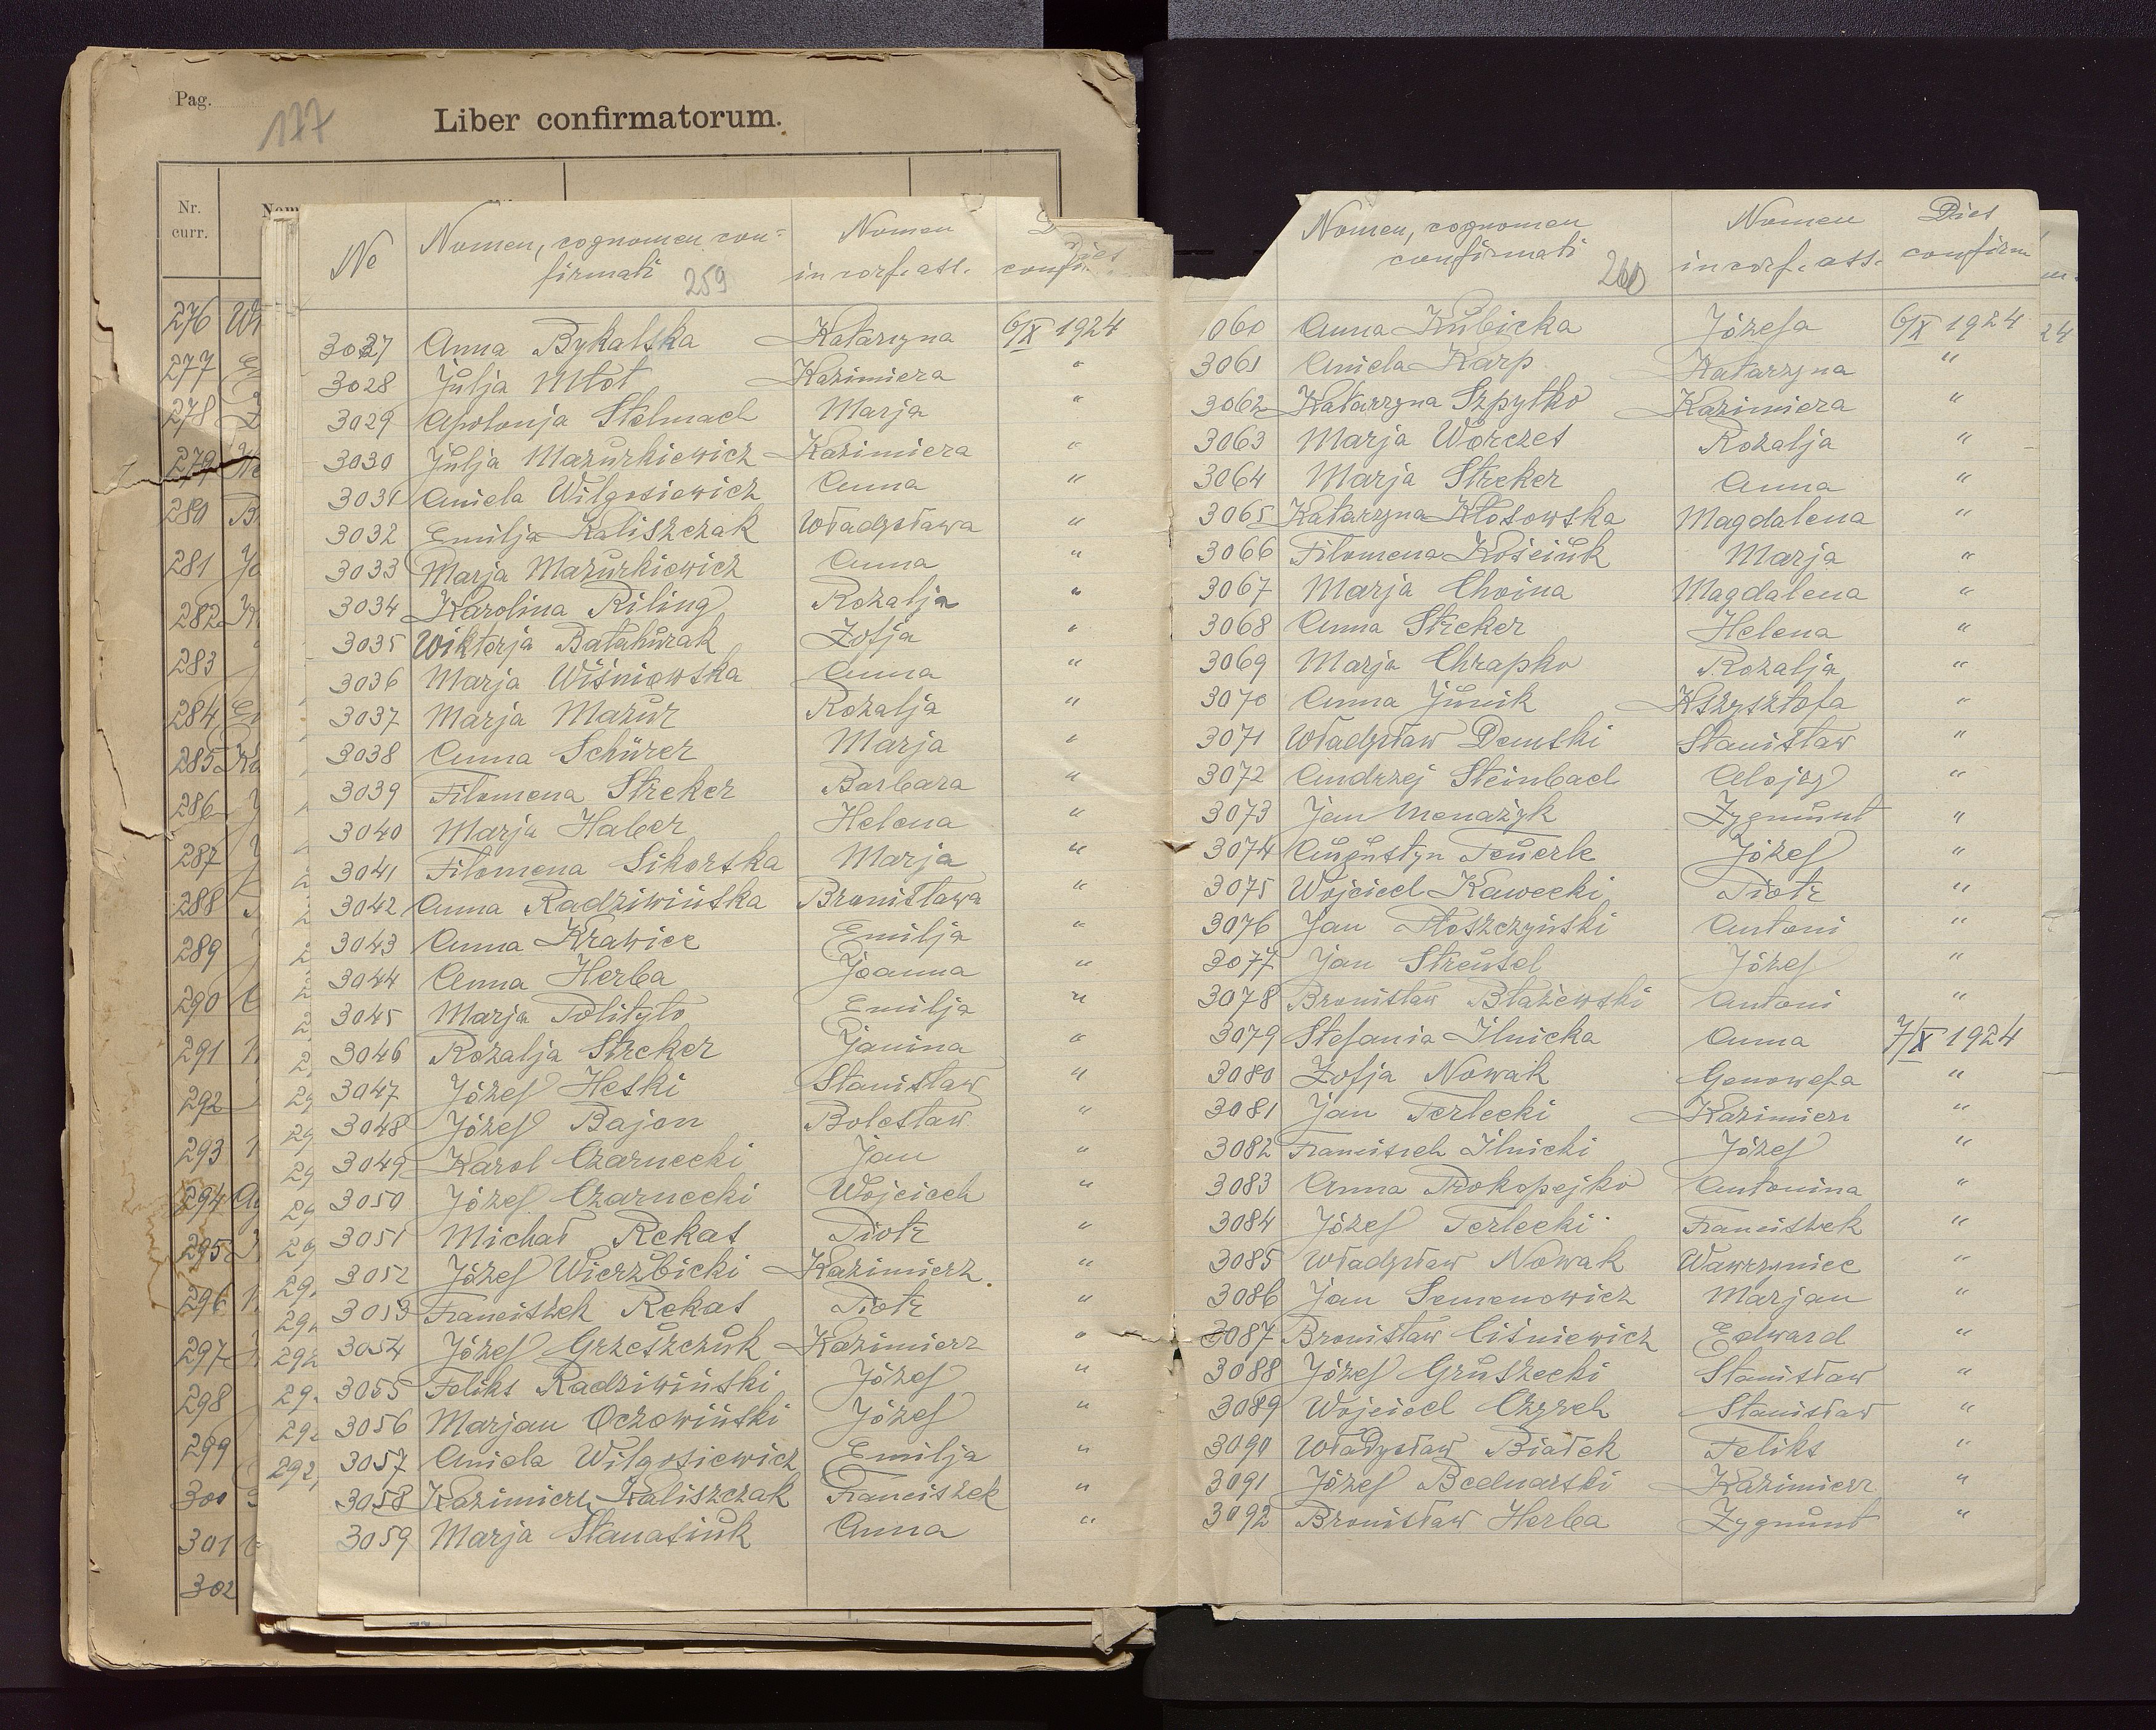 Pag.
177
Liber confirmatorum.
Nr.
curr.
276
277
278
279
280
281
282
283
284
285
286
287
288
289
290
291
292
293
294
295
296
297
298
299
300
301
302
No Nomen, cognomen con= Nomen
firmati in conf. ass. confi.
259
3027 Anna Bykalska Katarzyna 6/X 1924
3028 Julja Młot Kazimiera "
3029 Apolonja Stelmach Marja "
3030 Julja Mazurkiewicz Kazimiera "
3031 Aniela Wilgosiewicz Anna "
3032 Emilja Kaliszczak Władysława "
3033 Marja Mazurkiewicz Anna "
3034 Karolina Riling Rozalja "
3035 Wiktorja Batahurak Zofja "
3036 Marja Wiśniowska Anna "
3037 Marja Mazur Rozalja "
3038 Anna Schürer Marja "
3039 Filomena Streker Barbara "
3040 Marja Haber Helena "
3041 Filomena Sikorska Marja "
3042 Anna Radziwińska Bronisława "
3043 Anna Krawiec Emilja "
3044 Anna Herba Joanna "
3045 Marja Polityło Emilja "
3046 Rozalja Streker Janina "
3047 Józef Heski Stanisław "
3048 Józef Bajon Bolesław "
3049 Karol Czarnecki Jan "
3050 Józef Czarnecki Wojciech "
3051 Michał Rekas Piotr "
3052 Józef Wierzbicki Kazimierz. "
3053 Franciszek Rekas Piotr "
3054 Józef Grzeszczuk Kazimierz "
3055 Feliks Radziwiński Józef "
3056 Marjan Oczowiński Józef "
3057 Aniela Wilgosiewicz Emilja "
3058 Kazimierz Kaliszczak Franciszek "
3059 Marja Stanasiuk Anna "
Nomen, cognomen Nomen Dies
confirmati in conf. ass. confirm
260
060 Anna Kubicka Józefa 6/X 1924
3061 Aniela Karp Katarzyna "
3062 Katarzyna Szpytko Kazimiera "
3063 Marja Worczes Rozalja "
3064 Marja Streker Anna "
3065 Katarzyna Kłosowska Magdalena "
3066 Filomena Kościuk Marja "
3067 Marja Choina Magdalena "
3068 Anna Streker Helena "
3069 Marja Chrapko Rozalja "
3070 Anna Junik Kszysztofa "
3071 Władysław Demski Stanisław "
3072 Andrzej Steinbach Alojzy "
3073 Jan Menażyk Zygmunt "
3074 Augustyn Feuerle Józef "
3075 Wojciech Kawecki Piotr "
3076 Jan Płoszczyński Antoni "
3077 Jan Streusel Józef "
3078 Bronisław Błażewski Antoni "
3079 Stefania Ilnicka Anna 7/X 1924
3080 Zofja Nowak Genowefa "
3081 Jan Terlecki Kazimierz "
3082 Franciszek Ilnicki Józef "
3083 Anna Prokopejko Antonina "
3084 Józef Terlecki Franciszek "
3085 Władysław Nowak Wawrzyniec "
3086 Jan Semenowicz Marjan "
3087 Bronisław Ciśniewicz Edward "
3088 Józef Gruszecki Stanisław "
3089 Wojciech Czyrek Stanisław "
3090 Władysław Białek Feliks "
3091 Józef Bednarski Kazimierz "
3092 Bronisław Herba Zygmunt "
24